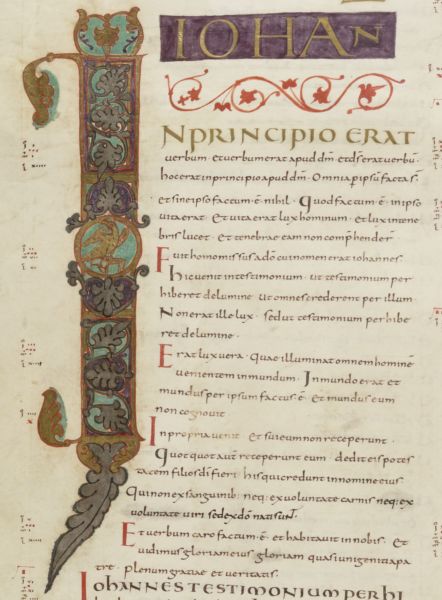 IOHAN
IN PRINCIPIO ERAT
verbum · Et verbum erat apud dm̄ · et ds̄ erat verbū ·
hoc erat in principio apud dm̄ · Omnia p̄ ipsū facta s̄ ·
et sine ipso factum ē nihil · Quod factum ē in ipso
vita erat · Et vita erat lux hominum · Et lux in tene
bris lucet · Et tenebrae eam non comp̄hender̄
Fuit homo missus a dō cui nomen erat iohannes ·
Hic venit in testimonium · ut testimonium per
hiberet de lumine · ut omnes crederent per illum ·
Non erat ille lux · sed ut testimonium perhibe
ret de lumine ·
Erat lux vera · Quae illuminat omnem hominē
venientem in mundum · In mundo erat et
mundus per ipsum factus ē · Et mundus eum
non cognovit
In propria venit · Et sui eum non receperunt ·
Quotquot aut̄ receperunt eum · dedit eis potes
tatem filios dī fieri · his qui credunt in nomine eius
Qui non ex sanguinib; neq; ex voluntate carnis neq; ex
voluntate viri sed ex dō nati sunt ·
Et verbum caro factum ē · et habitavit in nobis · Et
vidimus gloriam eius gloriam quasi unigeniti a pa
tre · plenum gratiae et veritatis ·
IOHANNES TESTIMONIUM PERHI